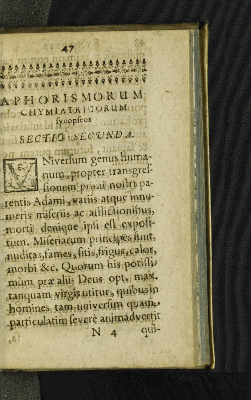 47
APHORISMORUM
CHYMIATRICORUM
synopseos
SECTIO SECUNDA.
VNiversum genus huma-
num, propter transgres-
sionem primi nostri pa-
rentis Adami, variis atque innu-
meris miseriis ac afflictionibus,
morti denique ipsi est exposi-
tum. Miseriarum principes sunt,
nuditas, fames, sitis, frigus, calor,
morbi &c. Quorum his potissi-
mum præ aliis Deus opt. max.
tanquam virgis utitur, quibus in
homines tam universim quam
particulatim severè animadvertit
N 4 qui-